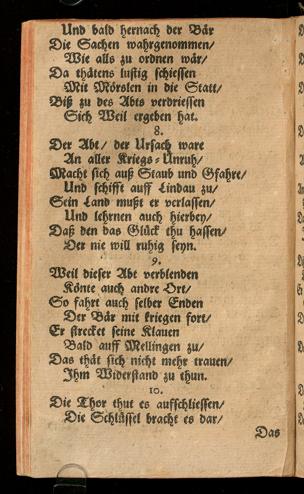 Und bald hernach der Bär
Die Sachen wahrgenommen/
Wie alls zu ordnen wär/
Da thätens lustig schiessen
Mit Mörslen in die Statt/
Biß zu des Abts verdriessen
Sich Weil ergeben hat.
8.
Der Abt/ der Ursach ware
An aller Kriegs-Unruh/
Macht sich auß Staub und Gfahre/
Und schifft auff Lindau zu/
Sein Land mußt er verlassen/
Und lehrnen auch hierbey/
Daß den das Glück thu hassen/
Der nie will ruhig seyn.
9.
Weil dieser Abt verblenden
Könte auch andre Ort/
So fahrt auch selber Enden
Der Bär mit kriegen fort/
Er strecket seine Klauen
Bald auff Mellingen zu/
Das thät sich nicht mehr trauen/
Ihm Widerstand zu thun.
10.
Die Thor thut es auffschliessen/
Die Schlüssel bracht es dar/
Das